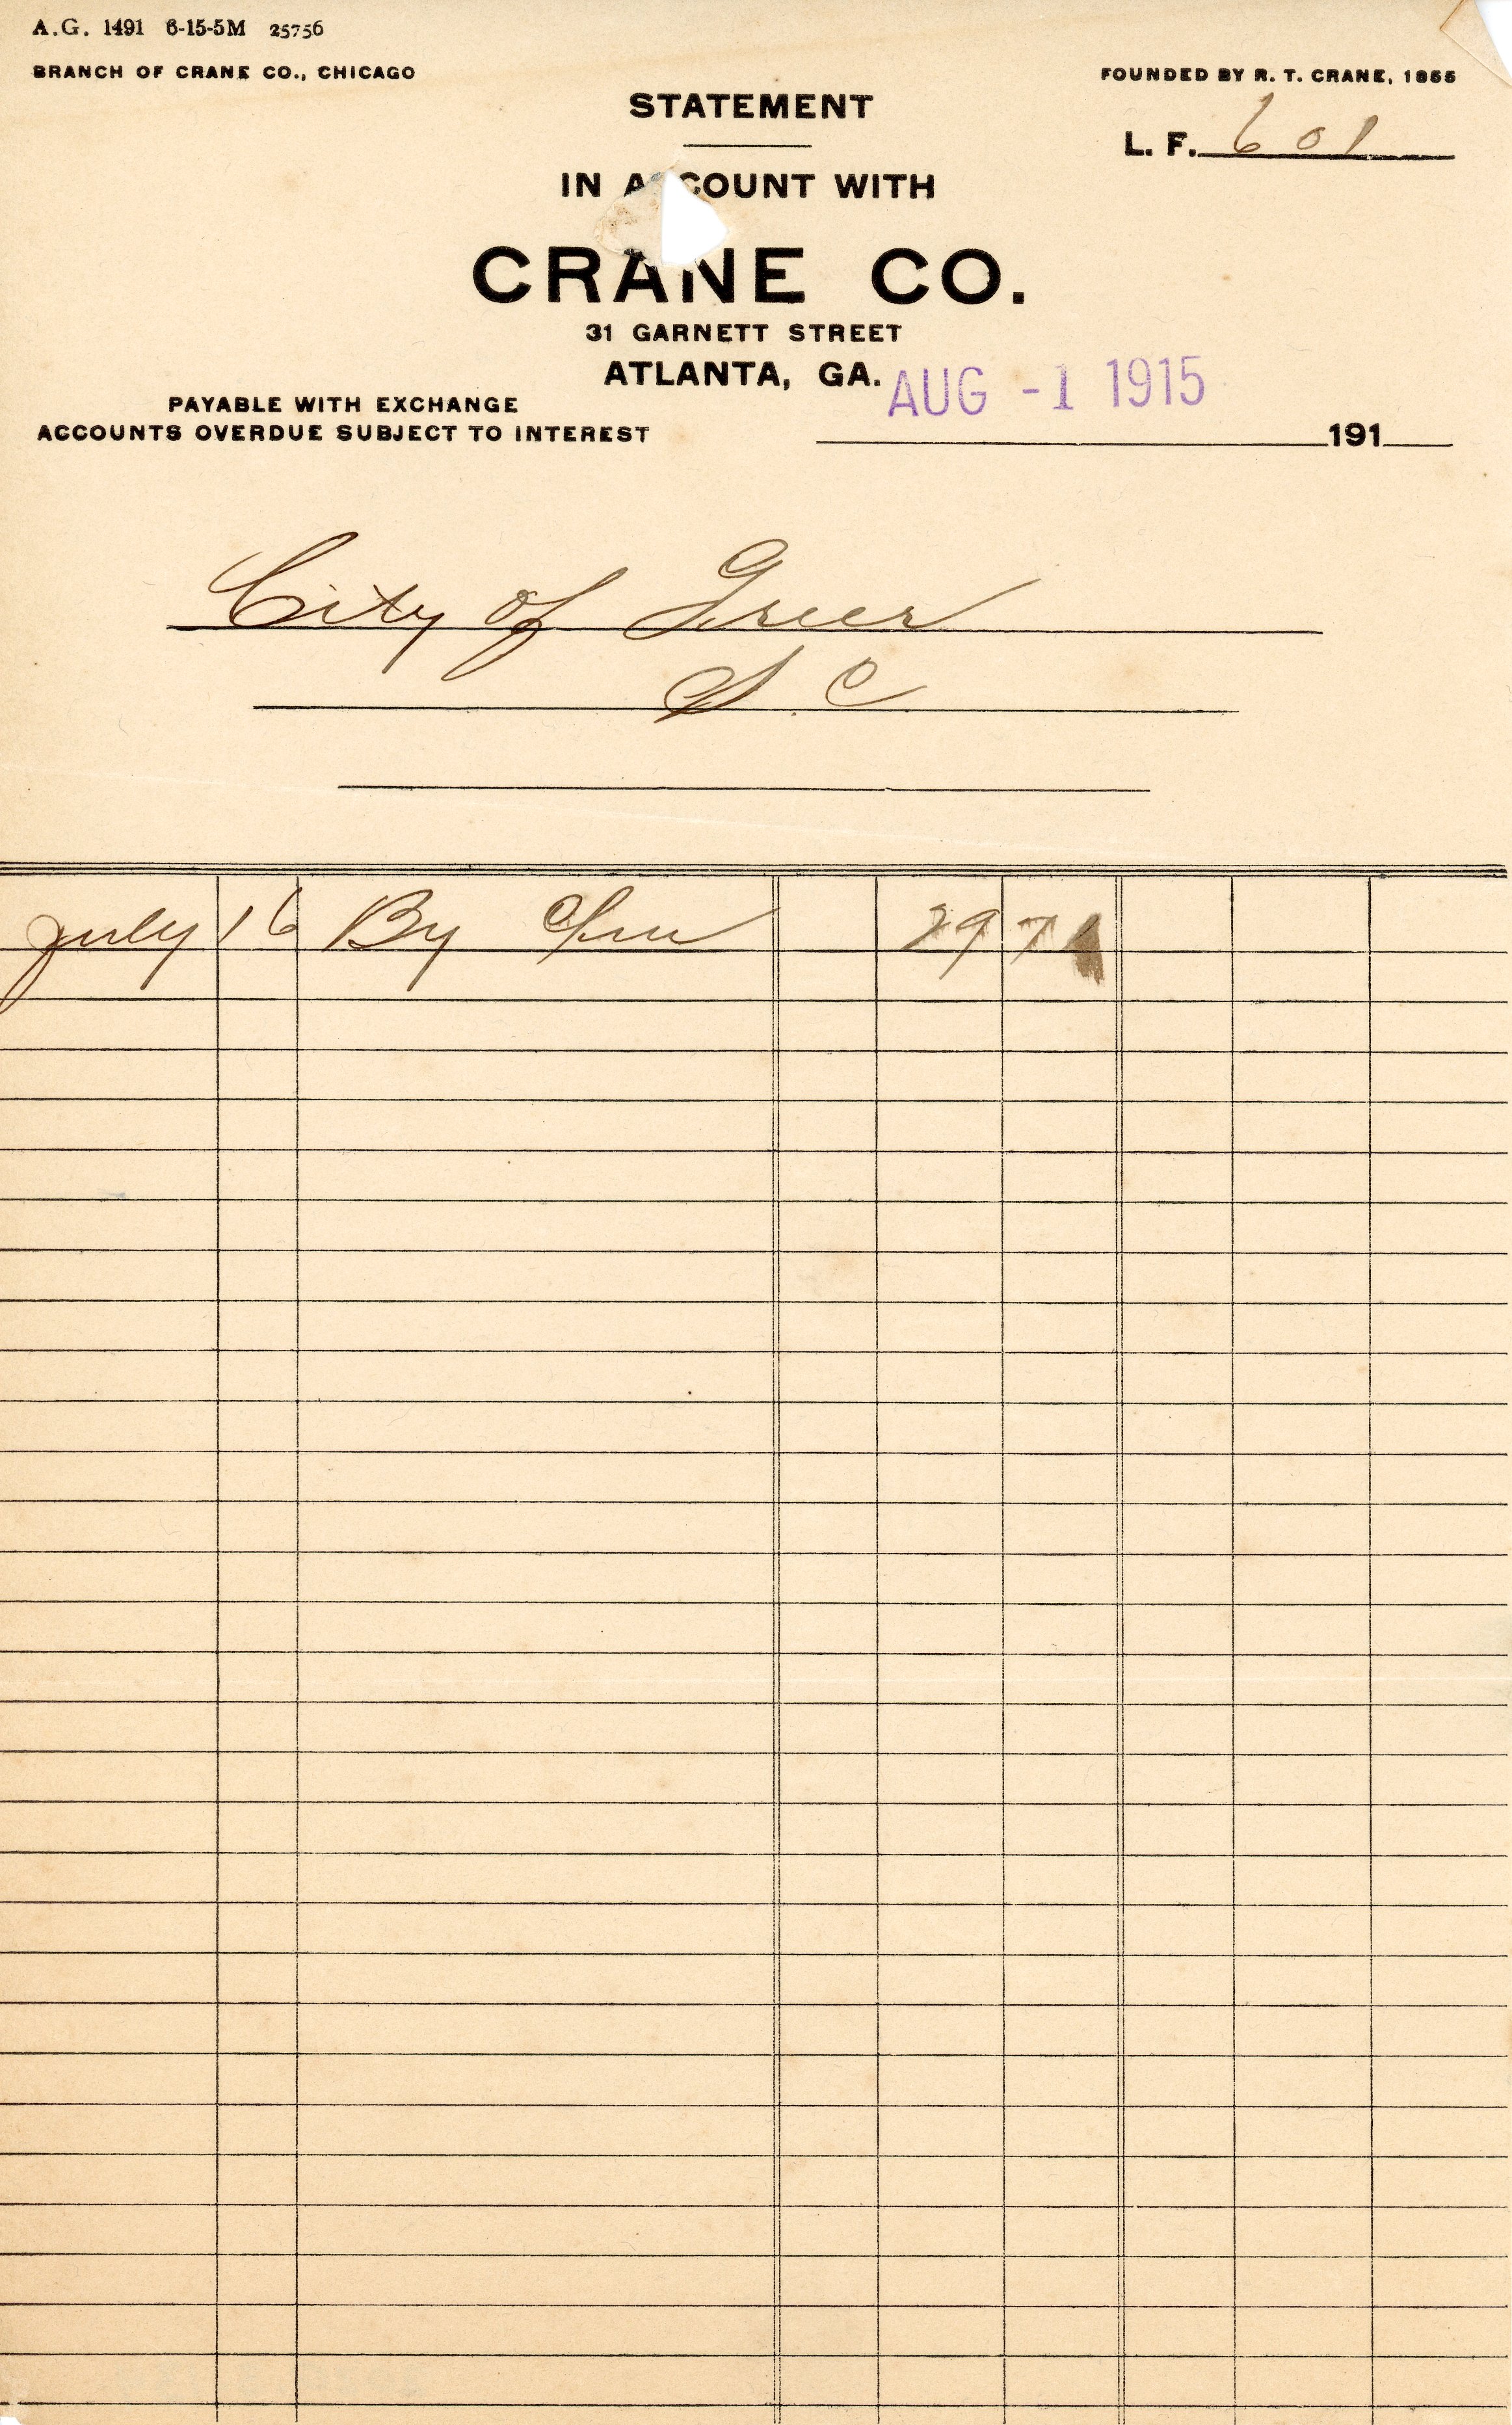 A.G. 1491 6-15-5M 25756
BRANCH OF CRANE CO., CHICAGO
FOUNDED BY R. T. CRANE, 1855
STATEMENT
L. F. 601
IN ACCOUNT WITH
CRANE CO.
31 GARNETT STREET
ATLANTA, GA.
AUG -1 1915
PAYABLE WITH EXCHANGE
ACCOUNTS OVERDUE SUBJECT TO INTEREST
191
City of Greer
S. C
July 16 By 29